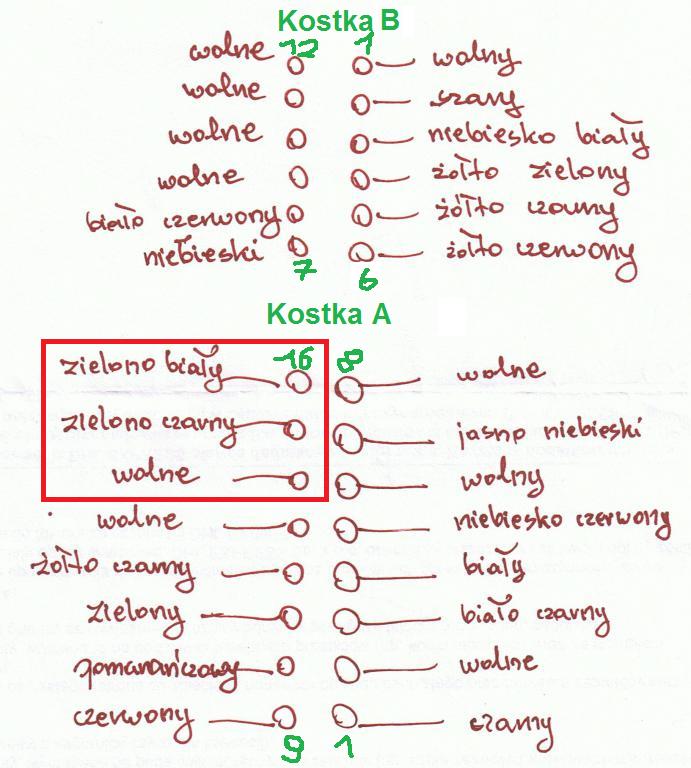 Kostka B
12 1
wolne wolny
wolne szary
wolne niebiesko biały
wolne żółto zielony
biało czerwony żółto czarny
niebieski żółto czerwony
7 6
Kostka A
zielono biały 16 8 wolne
zielono czarny jasno niebieski
wolne wolny
wolne niebiesko czerwony
żółto czarny biały
zielony biało czarny
pomarańczowy wolne
czerwony czarny
9 1